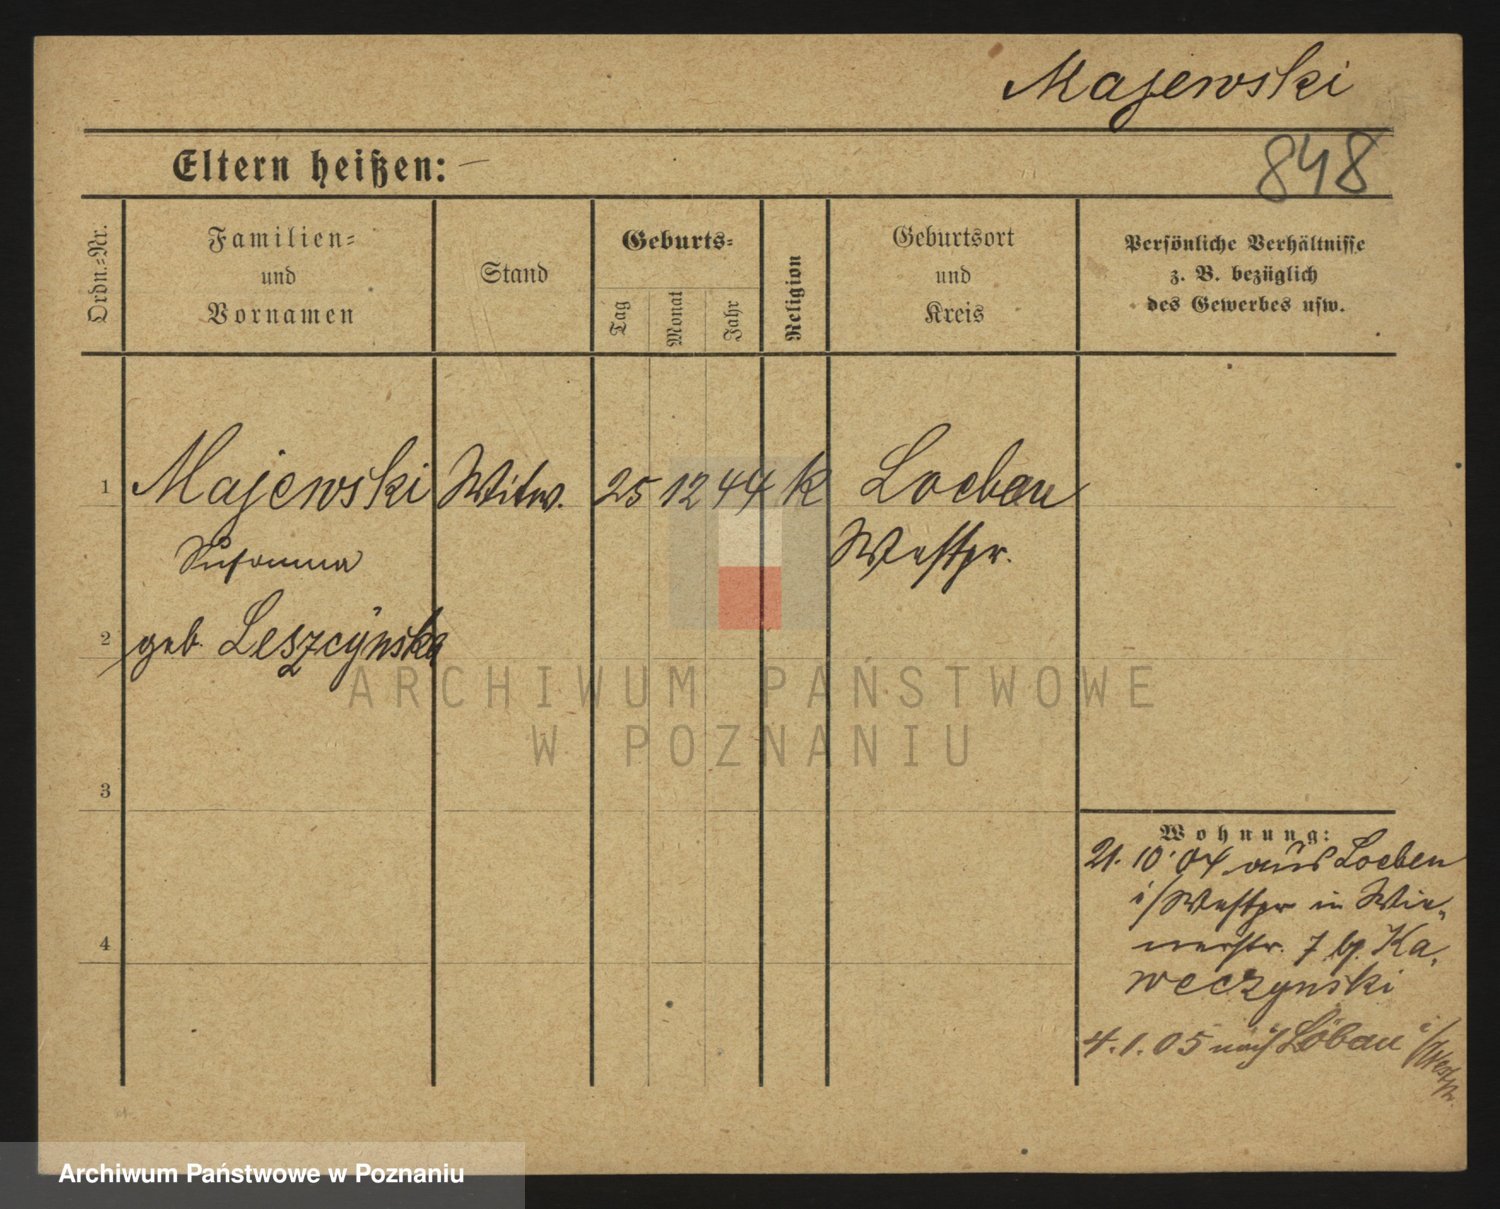 Majewski
848
Eltern heißen: —
Ordn.-Nr.
Familien-
und
Vornamen
Stand
Geburts-
Tag
Monat
Jahr
Religion
Geburtsort
und
Kreis
Persönliche Verhältnisse
z. B. bezüglich
des Gewerbes usw.
1 Majewski Witw. 25 12 44 k Loebau
Susanna Westpr.
2 geb. Leszcyńska
3
4
Wohnung:
21. 10. 04 aus Loebau
i/Westpr in Wie-
nerstr. 7 b/ Ka-
weczynski
4. 1. 05 nach Löbau i/Westpr.
ARCHIWUM PAŃSTWOWE
W POZNANIU
Archiwum Państwowe w Poznaniu